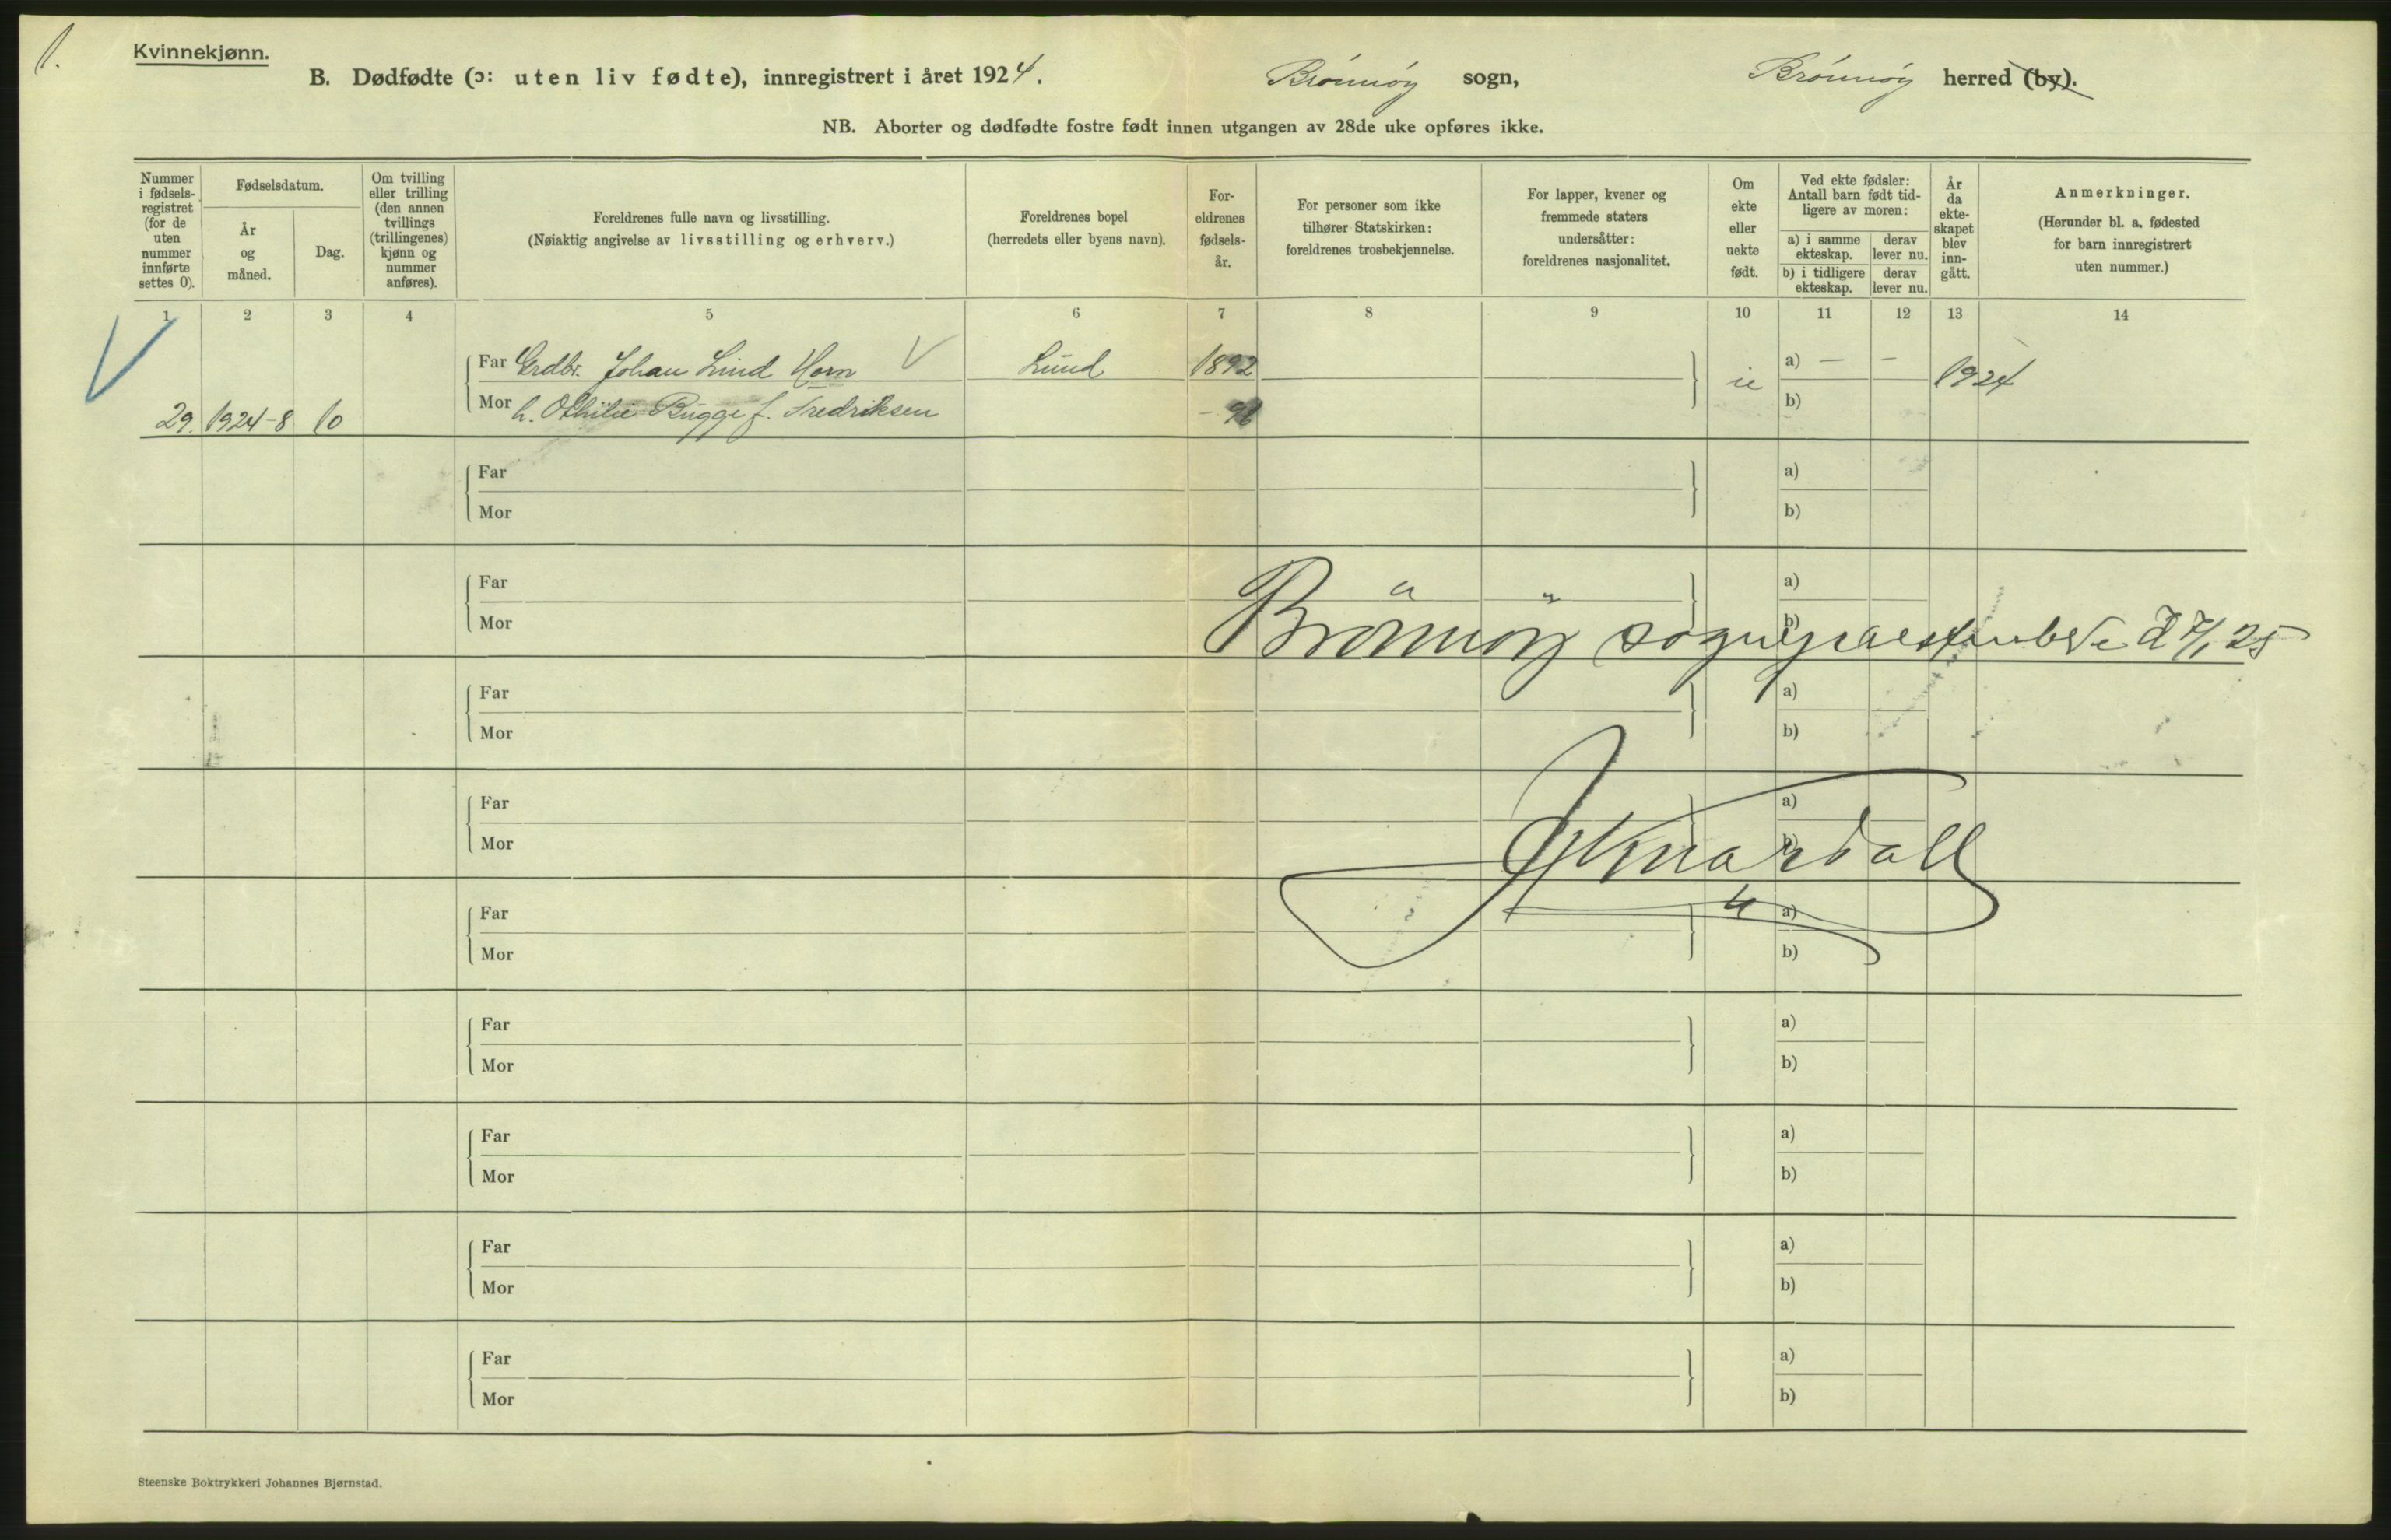 1.
Kvinnekjønn.
B. Dødfødte (ɔ: uten liv fødte), innregistrert i året 1924. Brönnöy sogn, Brönnöy herred (by).
NB. Aborter og dødfødte fostre født innen utgangen av 28de uke opføres ikke.
Nummer i fødsels-registret (for de uten nummer innførte settes 0).
Fødselsdatum.
År og måned.
Dag.
Om tvilling eller trilling (den annen tvillings (trillingenes) kjønn og nummer anføres).
Foreldrenes fulle navn og livsstilling.
(Nøiaktig angivelse av livsstilling og erhverv.)
Foreldrenes bopel
(herredets eller byens navn).
For-eldrenes fødsels-år.
For personer som ikke tilhører Statskirken: foreldrenes trosbekjennelse.
For lapper, kvener og fremmede staters undersåtter: foreldrenes nasjonalitet.
Om ekte eller uekte født.
Ved ekte fødsler: Antall barn født tid-ligere av moren:
a) i samme ekteskap.
derav lever nu.
b) i tidligere ekteskap.
derav lever nu.
År da ekte-skapet blev inn-gått.
Anmerkninger.
(Herunder bl. a. fødested for barn innregistrert uten nummer.)
1 2 3 4 5 6 7 8 9 10 11 12 13 14
Far Grdbr. Johan Lind Horn Lund 1892 a) — — 1924
29. 1924-8 10 Mor h. Othilie Bugge f. Fredriksen b)
Far a)
Mor b)
Far a)
Mor b)
Brönnöy sogneprestembede d 7/1 25
Far a)
Mor b)
Far a)
Mor b)
Far a)
Mor b)
Far a)
Mor b)
Far a)
Mor b)
Far a)
Mor b)
Far a)
Mor b)
Steenske Boktrykkeri Johannes Bjørnstad.